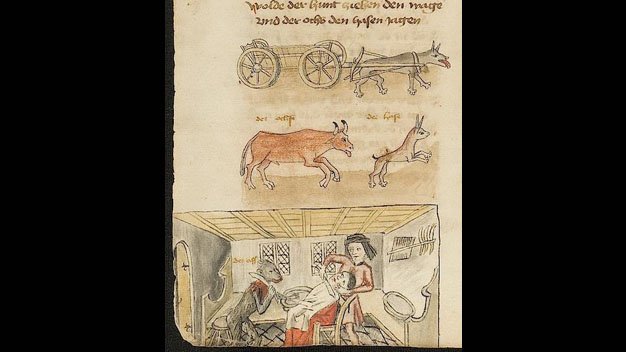 wolde der hunt ziehen den wage
und der ochs den hasen jagen
der ochs
der has
der aff